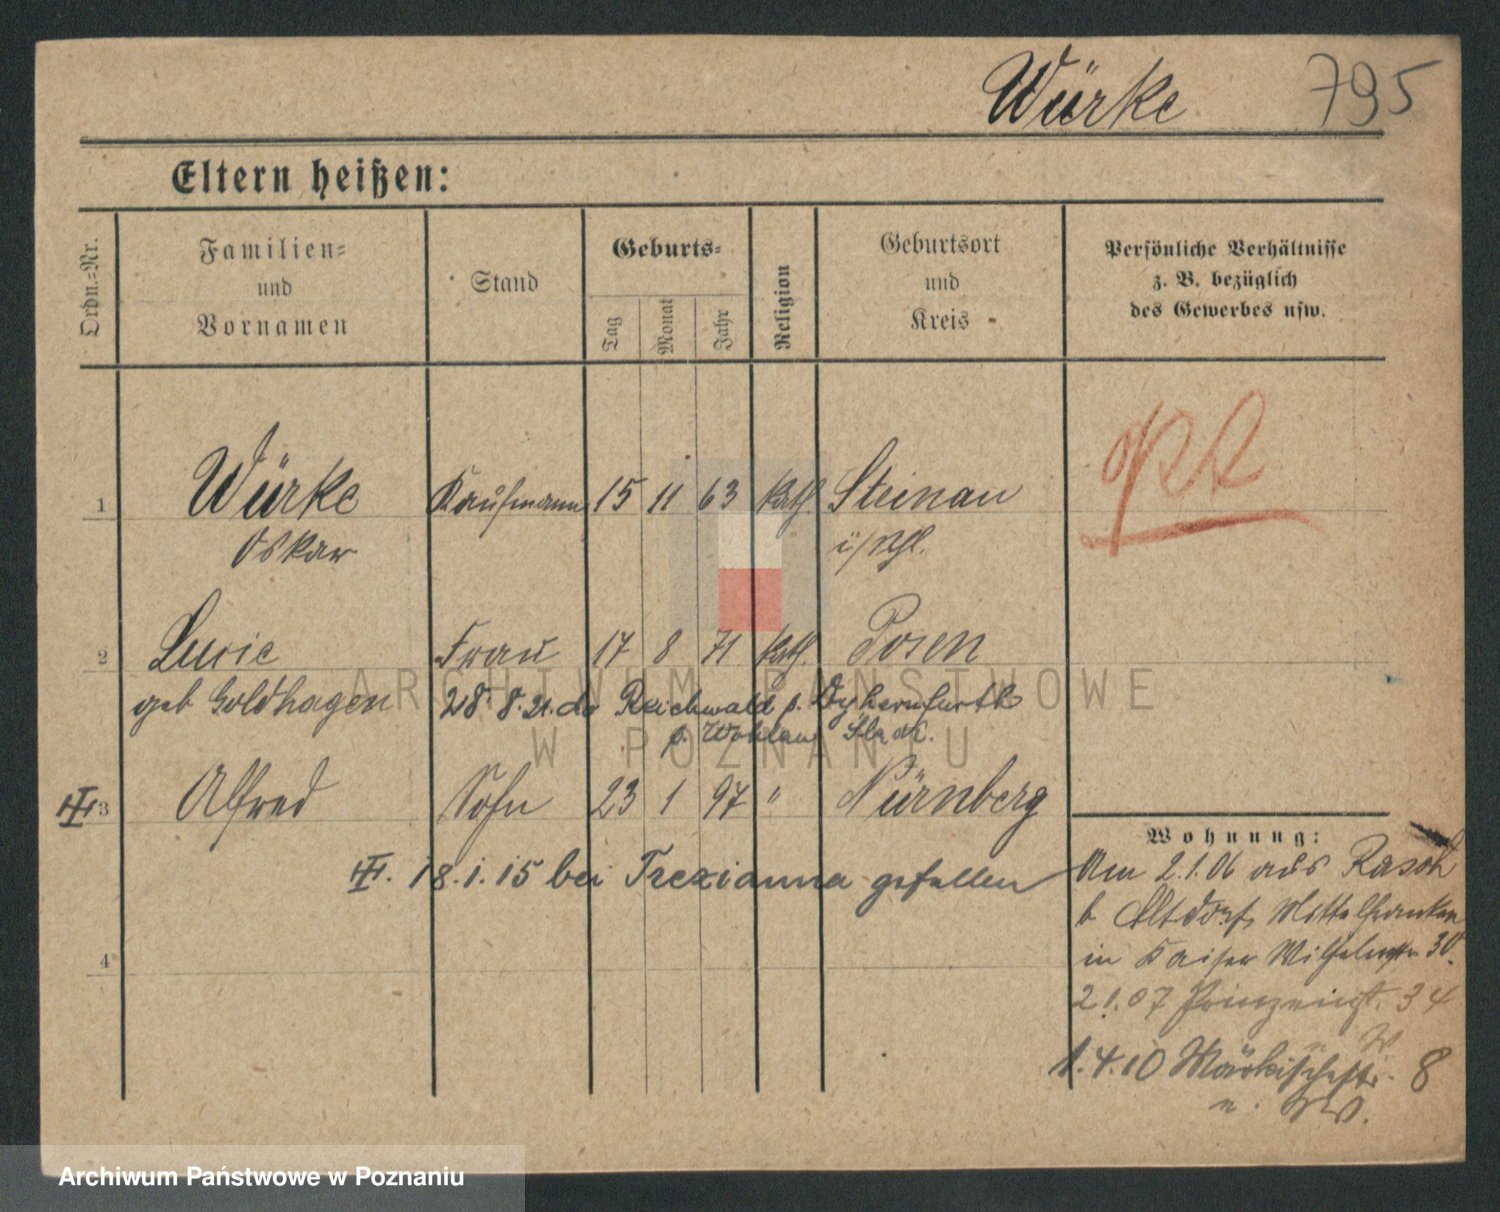 Würke 795
Eltern heißen:
Ordn.-Nr.
Familien-
und
Vornamen
Stand
Geburts-
Tag
Monat
Jahr
Religion
Geburtsort
und
Kreis
Persönliche Verhältnisse
z. B. bezüglich
des Gewerbes usw.
1 Würke Kaufmann 15 11 63 kath. Steinau
Oskar i/Schl.
2 Lucie Frau 17 8 71 kath. Posen
geb Goldhagen 28.8.21. Reichwald p. Dyhernfurth
p. Wohlau
3 Alfred Sohn 23 1 97 " Nürnberg
18.1.15 bei gefallen
4
Wohnung:
Am 2.1.06 aus Rasch
b Altdorf, Mittelfranken
in Kaiser Wilhelmstr 30.
2.1.07 Prinzenstr. 34
1.4.10 Märkischestr. 8
ARCHIWUM PAŃSTWOWE
W POZNANIU
Archiwum Państwowe w Poznaniu